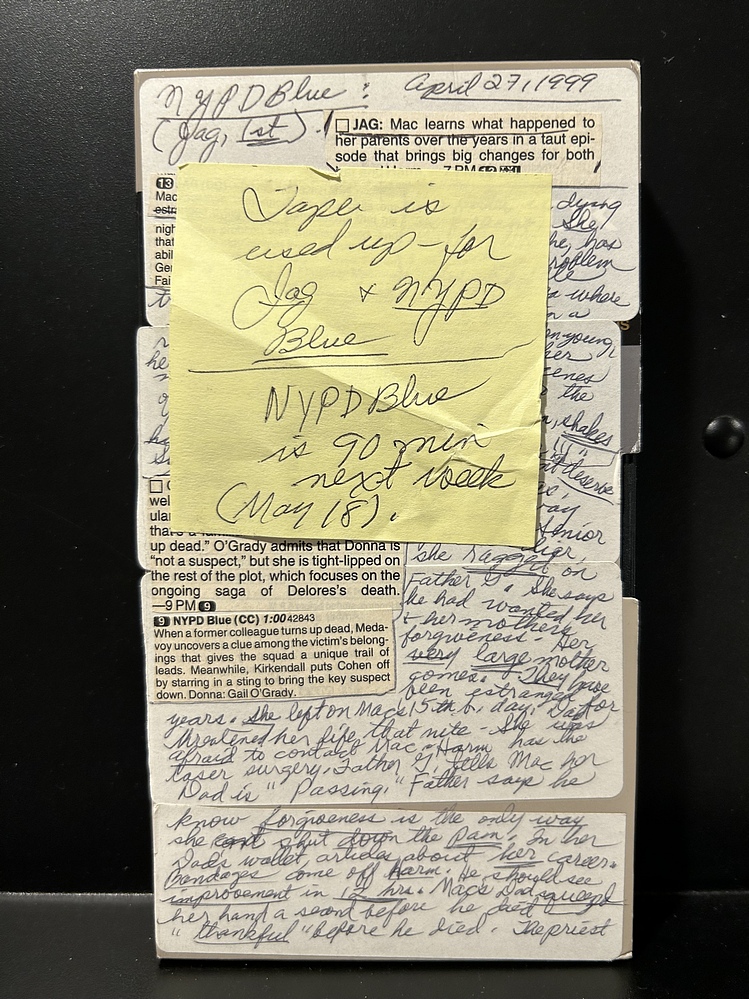 NYPD Blue : April 27, 1999
(Jag, 1st).
JAG: Mac learns what happened to
her parents over the years in a taut epi-
sode that brings big changes for both
7 PM
13
Mac
estr
nigh
that
abil
Ger
Fai
dying
She
he, has
problem
where
in a
young
her
scenes
the
shakes
deserve
Senior
she ragged on
Tape is
used up - for
Jag & NYPD
Blue
NYPD Blue
is 90 min
next week
(May 18).
wel
ular
that's a
up dead." O'Grady admits that Donna is
"not a suspect," but she is tight-lipped on
the rest of the plot, which focuses on the
ongoing saga of Delores's death.
—9 PM 9
9 NYPD Blue (CC) 1:00 42843
When a former colleague turns up dead, Meda-
voy uncovers a clue among the victim's belong-
ings that gives the squad a unique trail of
leads. Meanwhile, Kirkendall puts Cohen off
by starring in a sting to bring the key suspect
down. Donna: Gail O'Grady.
Father G". She says
he had wanted her
& her mothers
forgiveness. Her
very large mother
comes. They have
been estranged for
years. She left on Mac's 15th b. day. Dad
threatened her life that nite - She was
afraid to contact Mac. Harm has the
laser surgery. Father G. tells Mac her
Dad is "Passing." Father says he
know forgiveness is the only way
she can't shut down the pain. In her
Dad's wallet, articles about her career.
Bandages come off Harm. He should see
improvement in 12 hrs. Mac's Dad squeezed
her hand a second before he died &
"thankful" before he died. The priest